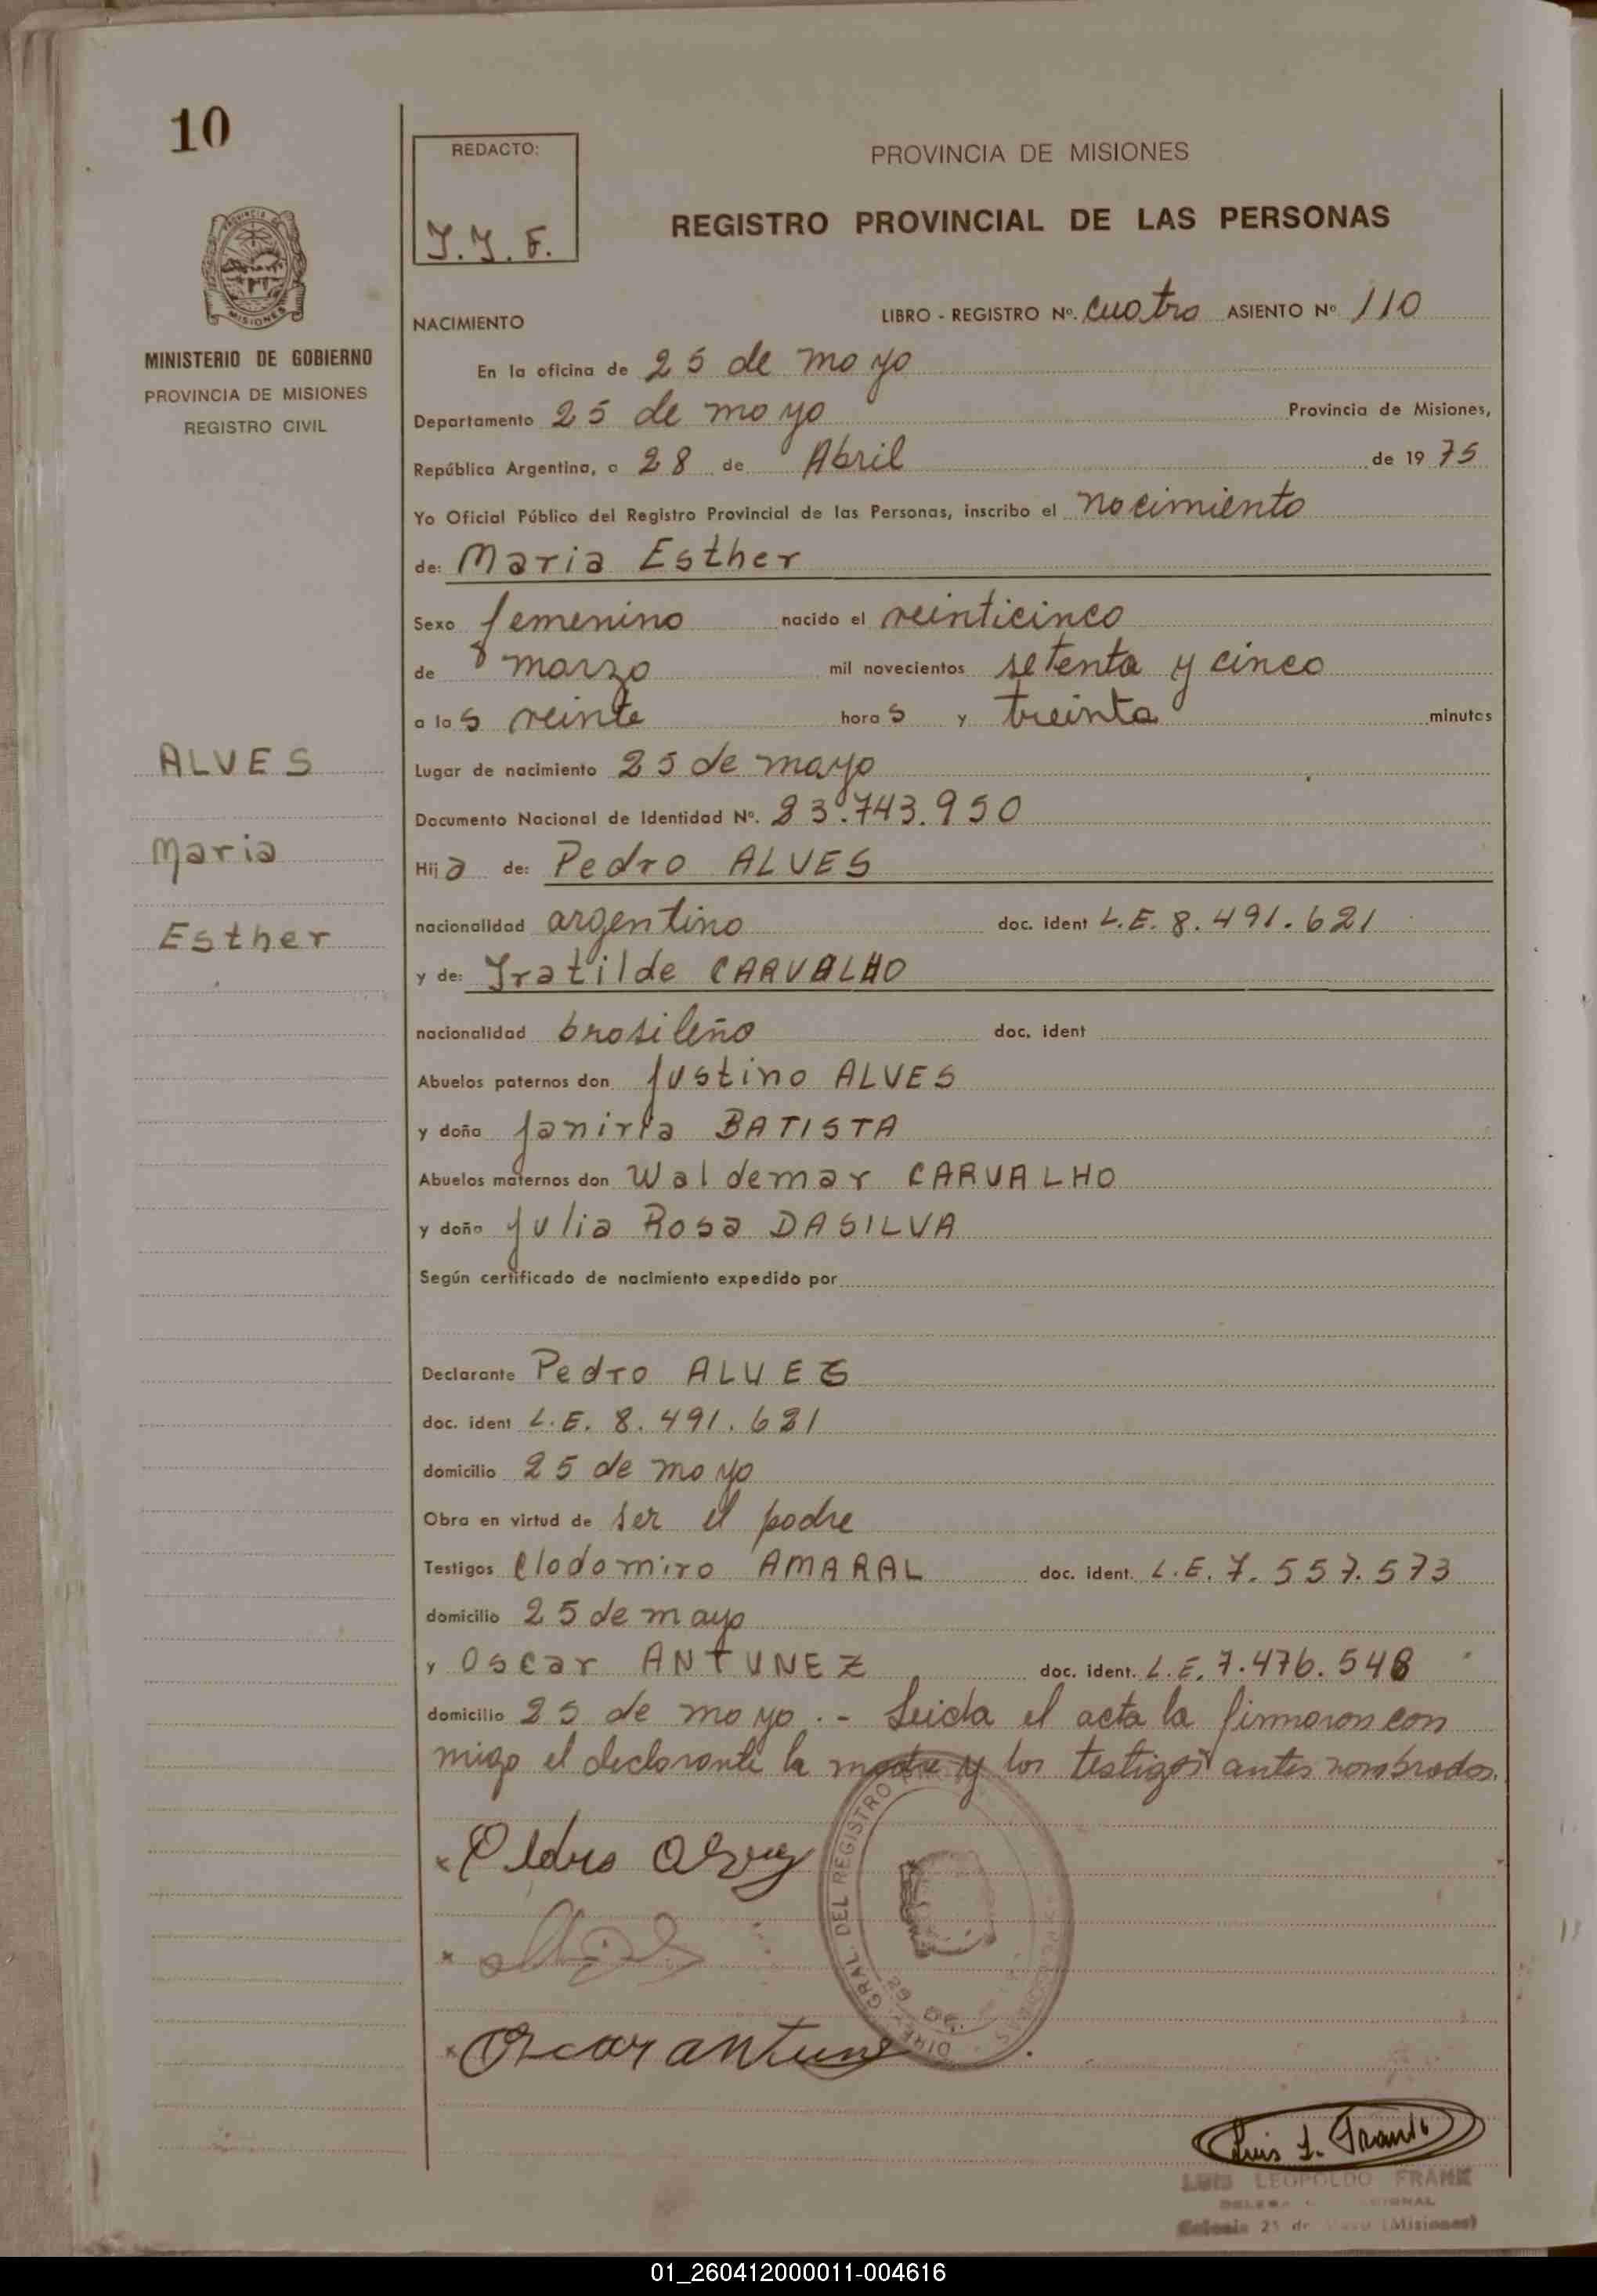 10
REDACTO:
J.J.F.
PROVINCIA DE MISIONES
REGISTRO PROVINCIAL DE LAS PERSONAS
PROVINCIA DE
MISIONES
MINISTERIO DE GOBIERNO
PROVINCIA DE MISIONES
REGISTRO CIVIL
NACIMIENTO
LIBRO - REGISTRO Nº. Cuatro ASIENTO Nº 110
En la oficina de 25 de mayo
Departamento 25 de mayo Provincia de Misiones,
República Argentina, a 28 de Abril de 19 75
Yo Oficial Público del Registro Provincial de las Personas, inscribo el nacimiento
de: Maria Esther
Sexo femenino nacido el veinticinco
de marzo mil novecientos setenta y cinco
a las veinte horas y treinta minutos
Lugar de nacimiento 25 de mayo
Documento Nacional de Identidad Nº. 23.743.950
Hija de: Pedro ALVES
nacionalidad argentino doc. ident L.E. 8.491.621
y de: Iratilde CARVALHO
nacionalidad brasileño doc. ident
Abuelos paternos don Justino ALVES
y doña BATISTA
Abuelos maternos don Waldemar CARVALHO
y doña Julia Rosa DASILVA
Según certificado de nacimiento expedido por
Declarante Pedro ALVES
doc. ident L.E. 8.491.621
domicilio 25 de mayo
Obra en virtud de ser el padre
Testigos Clodomiro AMARAL doc. ident. L.E. 7.557.573
domicilio 25 de mayo
y Oscar ANTUNEZ doc. ident. L.E. 7.476.548
domicilio 25 de mayo.- Leida el acta la firmaron con
migo el declarante la madre y los testigos antes nombrados.
ALVES
Maria
Esther
x Pedro Alves
x
x Oscar antune
DIREC. GRAL. DEL REGISTRO
Luis L. Frank
LUIS LEOPOLDO FRANK
Colonia 25 de Mayo (Misiones)
01_260412000011-004616